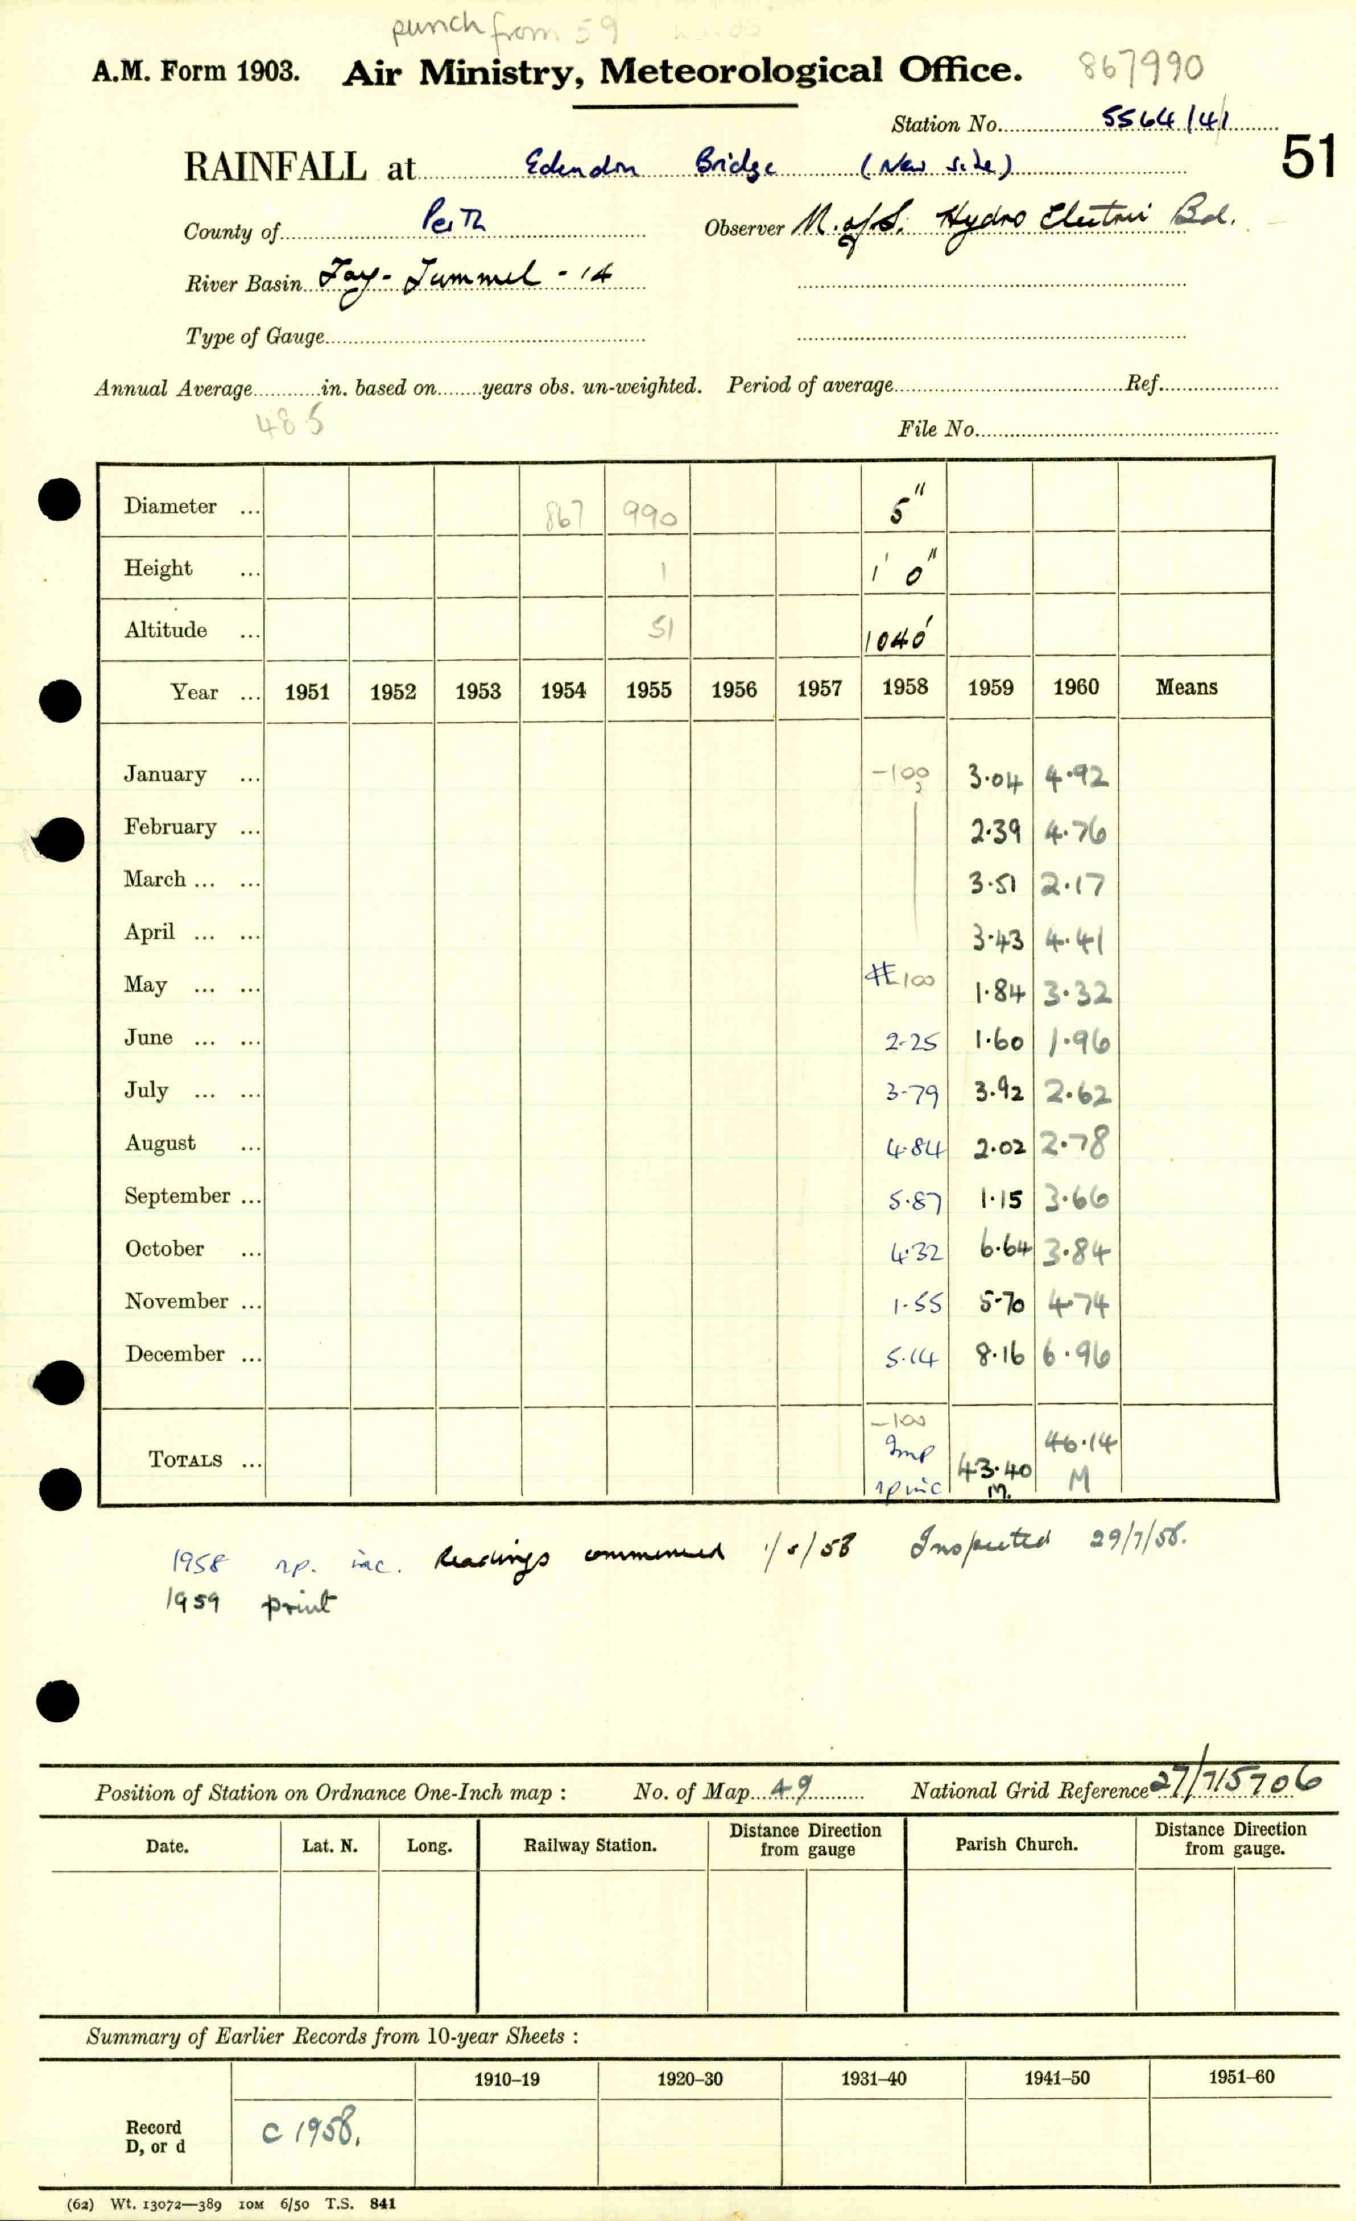 punch from 59
A.M. Form 1903. Air Ministry, Meteorological Office. 867990
Station No. 5564/4/1
51
RAINFALL at Edendon Bridge (New Site)
County of Perth Observer N. of S. Hydro Electric Bd.
River Basin Tay - Tummel - 14
Type of Gauge
Annual Average in. based on years obs. un-weighted. Period of average Ref.
48.5
File No.
Diameter ... 867 990 5"
Height ... 1 1' 0"
Altitude ... 51 1040'
Year ... 1951 1952 1953 1954 1955 1956 1957 1958 1959 1960 Means
January ... -100 3.04 4.92
February ... 2.39 4.76
March ... ... 3.51 2.17
April ... ... 3.43 4.41
May ... ... 100 1.84 3.32
June ... ... 2.25 1.60 1.96
July ... ... 3.79 3.92 2.62
August ... 4.84 2.02 2.78
September ... 5.87 1.15 3.66
October ... 4.32 6.64 3.84
November ... 1.55 5.70 4.74
December ... 5.14 8.16 6.96
-100
TOTALS ... Imp 43.40 46.14
np inc M. M
1958 np. inc. Readings commenced 1/5/58 Inspected 29/7/58.
1959 print
Position of Station on Ordnance One-Inch map : No. of Map 49 National Grid Reference 27/715706
Date. Lat. N. Long. Railway Station. Distance Direction from gauge Parish Church. Distance Direction from gauge.
Summary of Earlier Records from 10-year Sheets :
1910–19 1920–30 1931–40 1941–50 1951–60
Record
D, or d
C 1958.
(62) Wt. 13072—389 10M 6/50 T.S. 841